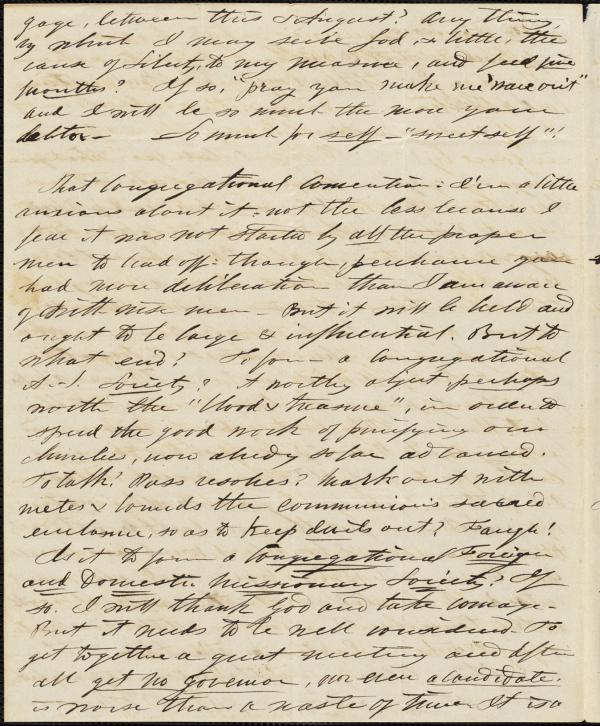 gage, between this & August? Any thing,
by which I may serve God, & little, the
cause of Liberty, to my measure, and feed five
mouths? If so, "pray you make me 'ware on't"
and I will be so much the more your
debtor — So much for self — "sweet self"!
That Congregational Convention: I'm a little
anxious about it: not the less because I
fear it was not started by all the proper
men to lead off: though, perchance you
had more deliberation than I am aware
of with wise men — But it will be held and
ought to be large & influential. But to
what end? To form a Congregational
A. S. Society? A worthy object, perhaps
worth the "blood & treasure", in order to
speed the good work of purifying our
churches, now already so far advanced.
To talk? Pass resolves? Mark out with
metes & bounds the communion's sacred
enclosure, so as to keep devils out? Faugh!
Is it to form a Congregational Foreign
and Domestic Missionary Society? If
so. I will thank God and take courage —
But it needs to be well considered. To
get together a great meeting and after
all get no governor, nor even a candidate.
is worse than a waste of time. It is a